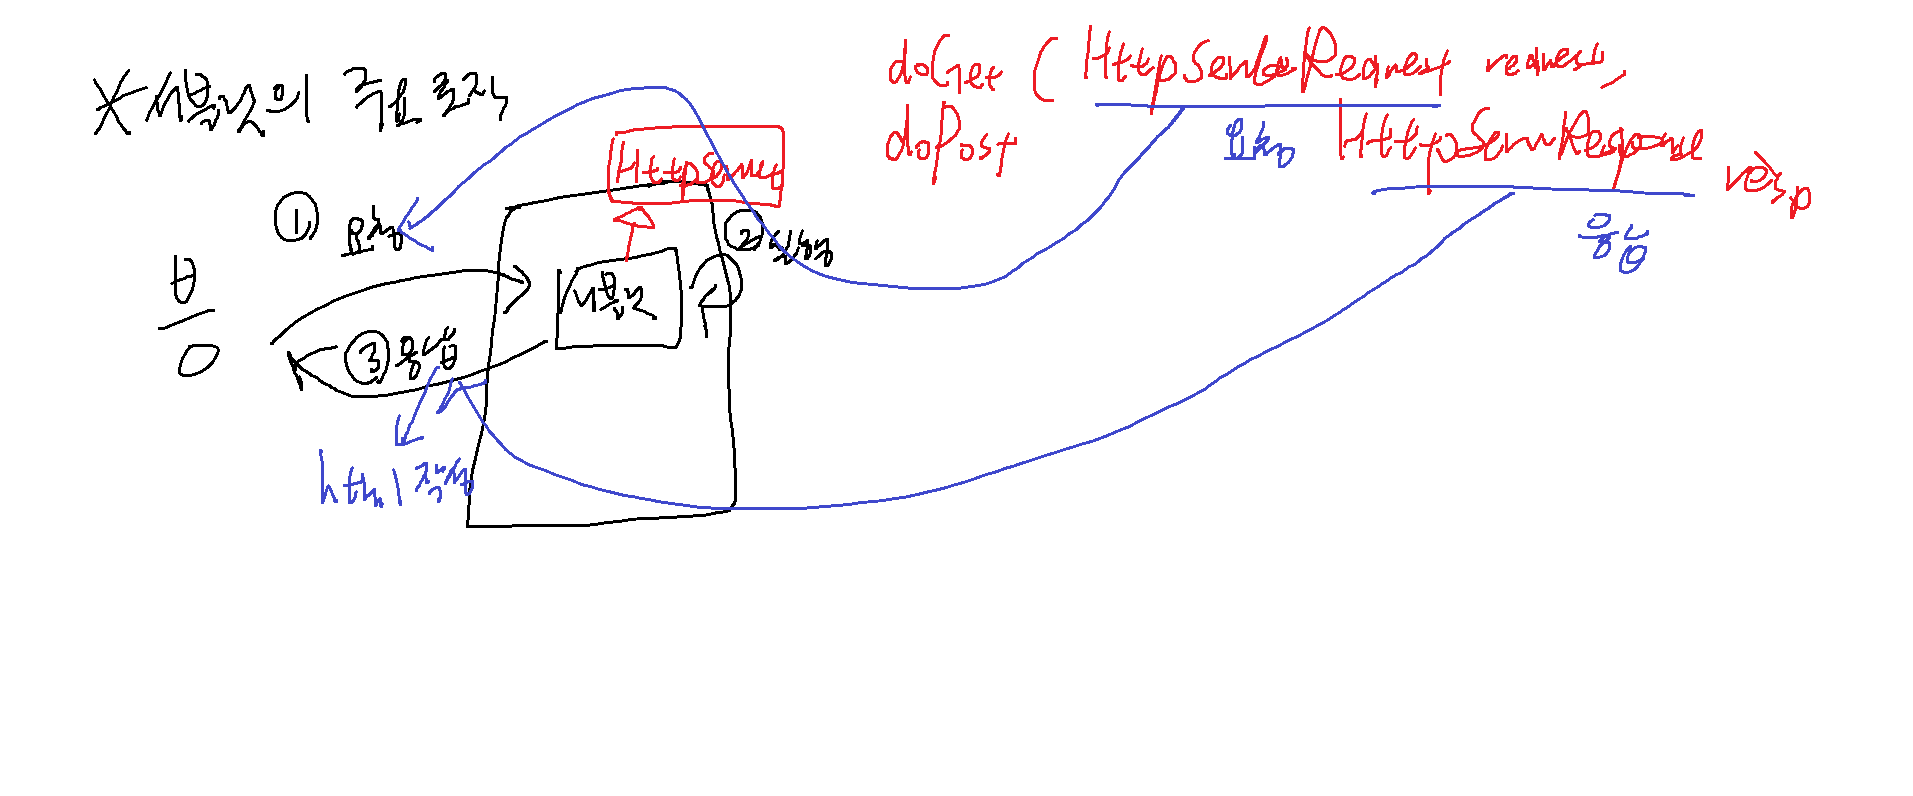 *서블릿의 주요 로직
doGet ( HttpServletRequest request,
doPost
요청
HttpServletResponse resp
응답
HttpServlet
① 요청
② 실행
서블릿
브
③ 응답
html 작성